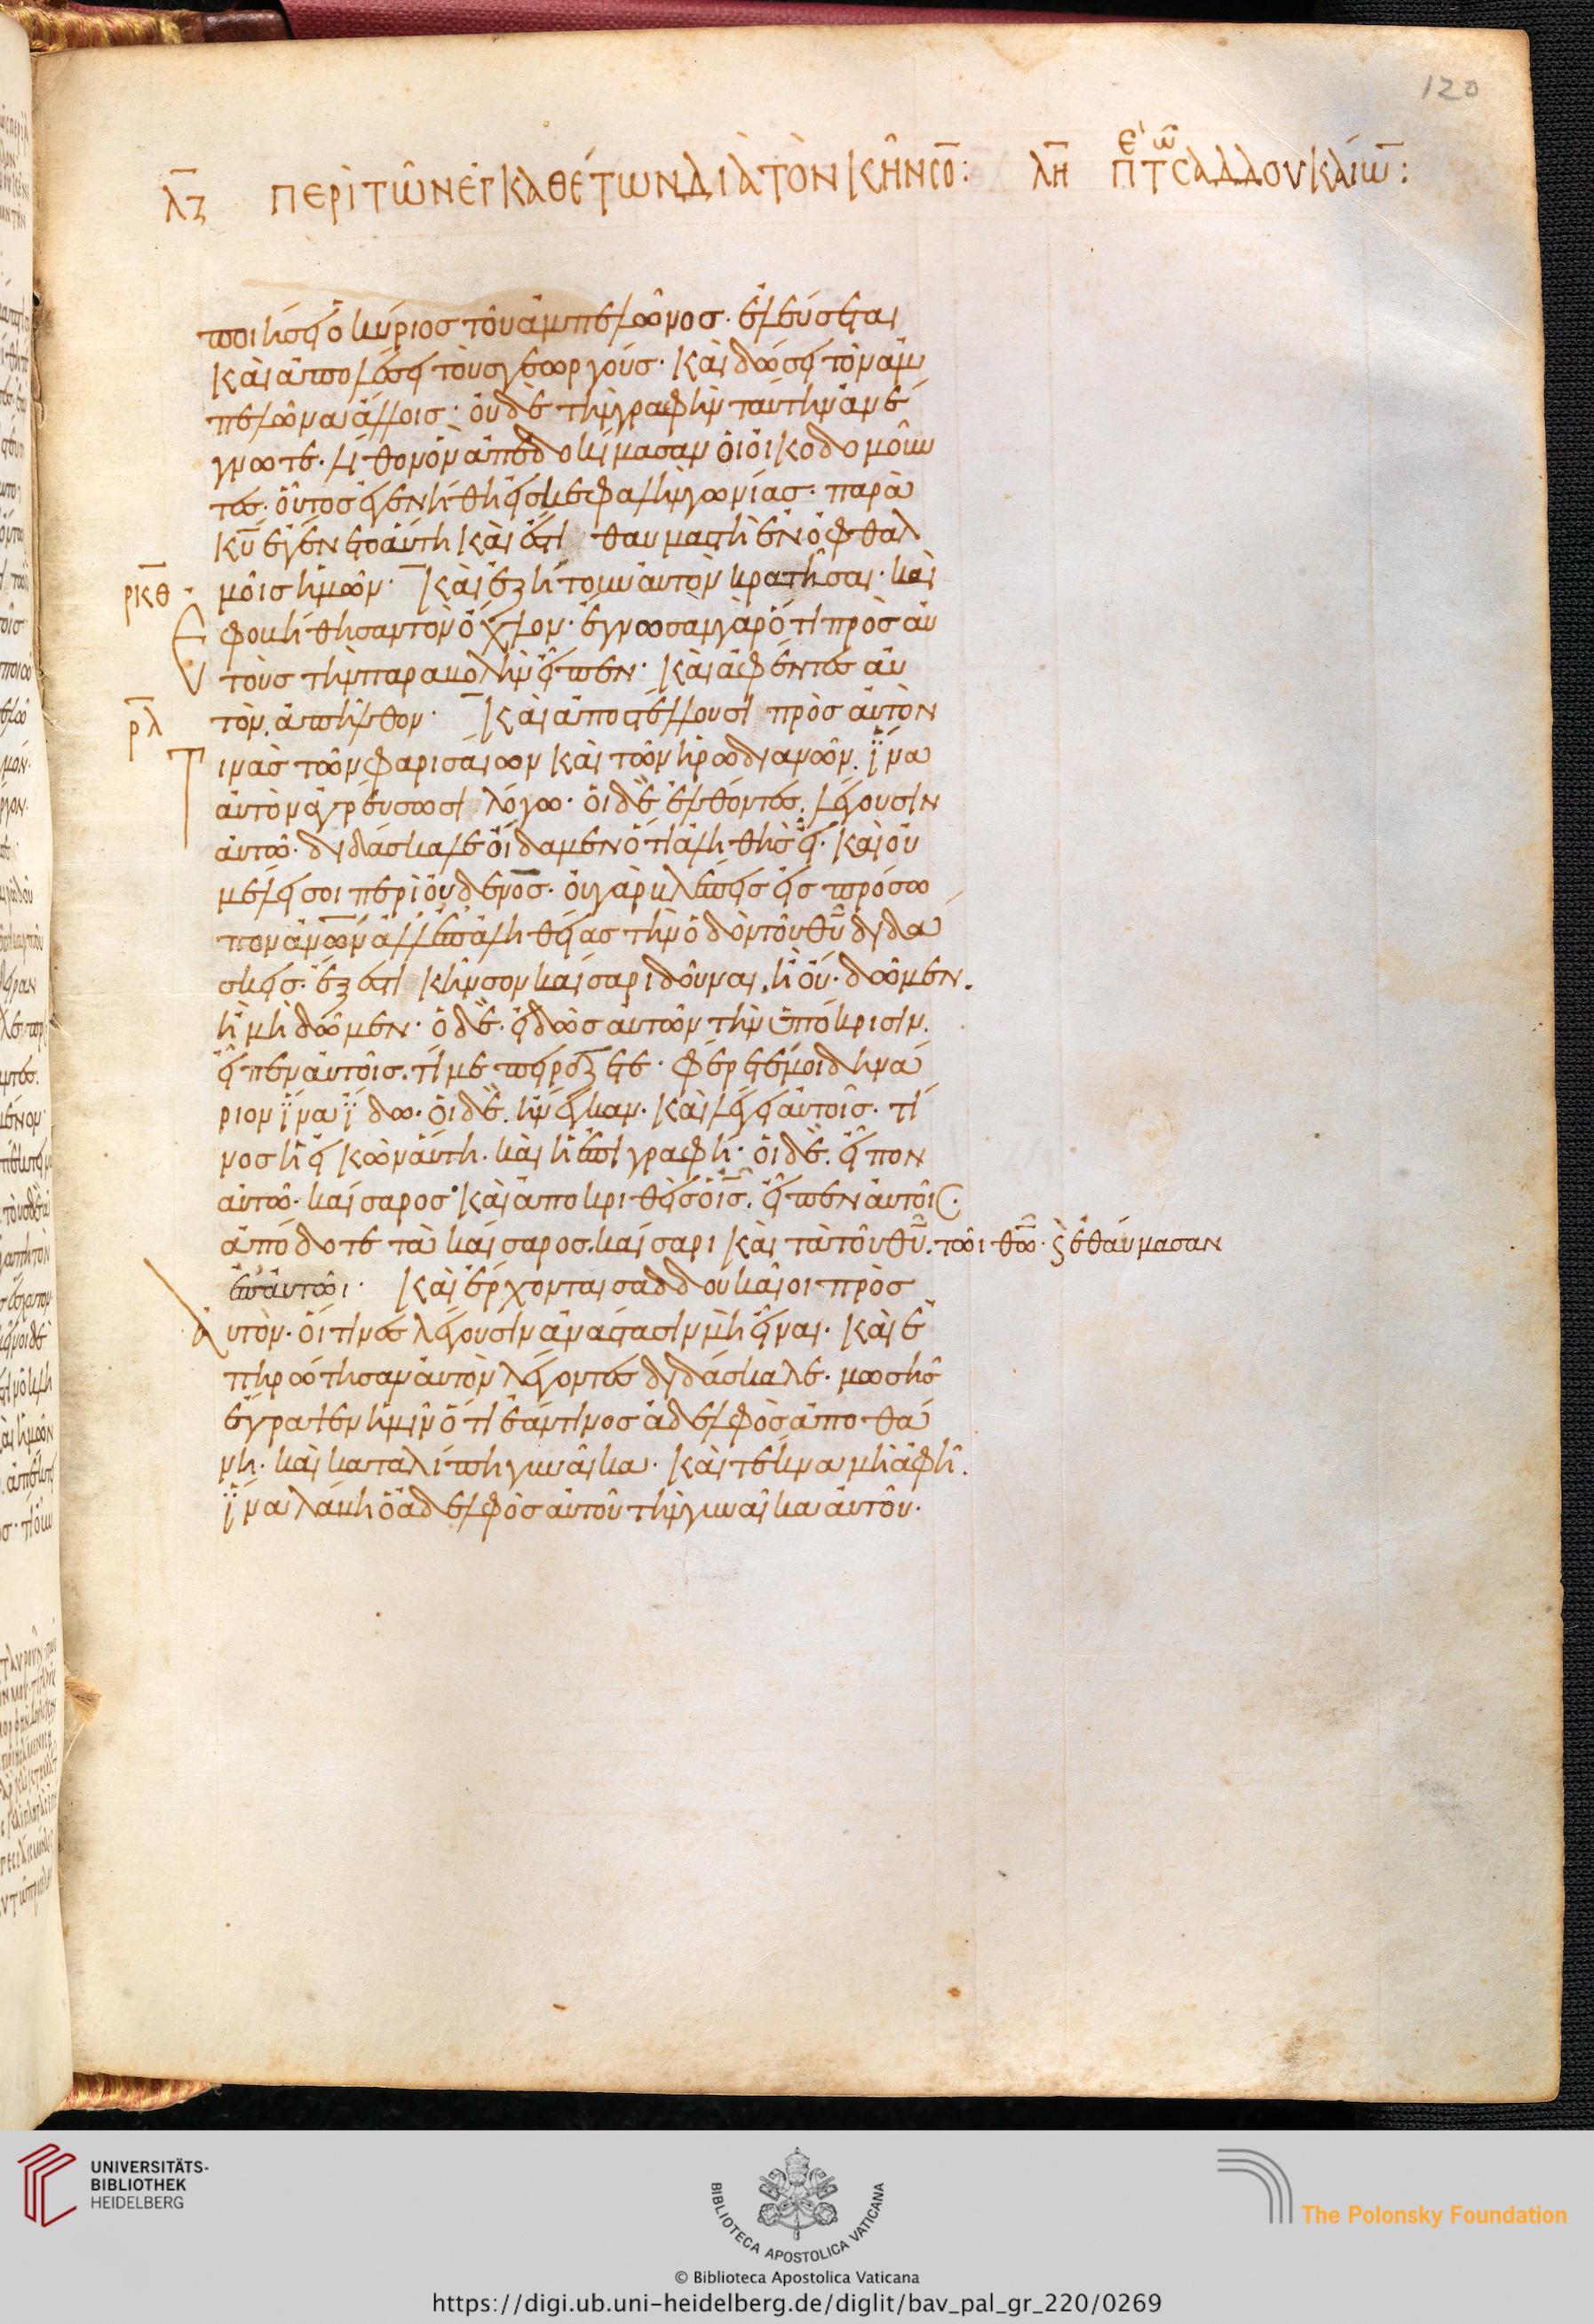 120
λζ ΠΕΡῚ ΤῶΝ ἘΓΚΑΘΈΤΩΝ ΔΙᾺ ΤῸΝ ΚῆΝϹΟ: λη Π Τ ϹΑΔΔΟΥΚΑΊω:
ποιήσει ὁ κύριοσ τοῦ ἀμπελῶνοσ· ἐλεύσεται
καὶ ἀπολέσει τοὺσ γεωργούσ· καὶ δώσει τὸν ἀμ
πελῶνα ἄλλοισ· οὐδὲ τὴν γραφὴν ταύτην ἀνέ
γνωτε· λίθον ὃν ἀπεδοκίμασαν οἱ οἰκοδομοῦν
τεσ· οὗτοσ ἐγενήθη εἰσ κεφαλὴν γωνίασ· παρὰ
κυ ἐγένετο αὕτη καὶ ἔστι θαυμαστὴ ἐν ὀφθαλ
ρκθ μοῖσ ἡμῶν· καὶ ἐζήτουν αὐτὸν κρατῆσαι· καὶ
Ἐφοβήθησαν τὸν ὄχλον· ἔγνωσαν γὰρ ὅτι πρὸσ αὐ
τοὺσ τὴν παραβολὴν εἶπεν· καὶ ἀφέντεσ αὐ
ρλ τὸν. ἀπῆλθον· καὶ ἀποστέλλουσι πρὸσ αὐτὸν
Τινὰσ τῶν φαρισαίων καὶ τῶν ἡρωδιανῶν. ἵνα
αὐτὸν ἀγρεύσωσι λόγω· οἱ δὲ ἐλθόντεσ. λέγουσιν
αὐτῶ· διδάσκαλε οἴδαμεν ὅτι ἀληθὴσ εἶ· καὶ οὐ
μέλει σοι περὶ οὐδενόσ· οὐ γὰρ βλέπεισ εἰσ πρόσω
πον ἀνων ἀλλ' ἐπ' ἀληθείασ τὴν ὁδὸν τοῦ θυ διδά
σκεισ· ἔξεστι κῆνσον καίσαρι δοῦναι, ἢ οὔ· δῶμεν.
ἢ μὴ δῶμεν· ὁ δὲ· εἰδὼσ αὐτῶν τὴν ὑπόκρισιν.
εἶπεν αὐτοῖσ. τί με πειράζετε· φέρετέ μοι δηνά
ριον ἵνα ἴδω· οἱ δὲ. ἤνεγκαν· καὶ λέγει αὐτοῖσ· τί
νοσ ἡ εἰκὼν αὕτη· καὶ ἡ ἐπιγραφή· οἱ δὲ. εἶπον
αὐτῶ· καίσαροσ· καὶ ἀποκριθεὶσ ὁ ισ. εἶπεν αὐτοῖσ·
ἀπόδοτε τὰ καίσαροσ. καίσαρι καὶ τὰ τοῦ θυ. τῶι θω· ϛ ἐθαύμασαν
ἐπ' αὐτῶι· καὶ ἔρχονται σαδδουκαῖοι πρὸσ
Ἀυτὸν· οἵτινεσ λέγουσιν ἀνάστασιν μὴ εἶναι· καὶ ἐ
πηρώτησαν αὐτὸν λέγοντεσ διδάσκαλε· μωσῆσ
ἔγραψεν ἡμῖν ὅτι ἐάν τινοσ ἀδελφὸσ ἀποθά
νη· καὶ καταλίπη γυναῖκα· καὶ τέκνα μὴ ἀφῆ.
ἵνα λάβη ὁ ἀδελφὸσ αὐτοῦ τὴν γυναῖκα αὐτοῦ·
UNIVERSITÄTS-
BIBLIOTHEK
HEIDELBERG
BIBLIOTECA APOSTOLICA VATICANA
The Polonsky Foundation
© Biblioteca Apostolica Vaticana
https://digi.ub.uni-heidelberg.de/diglit/bav_pal_gr_220/0269